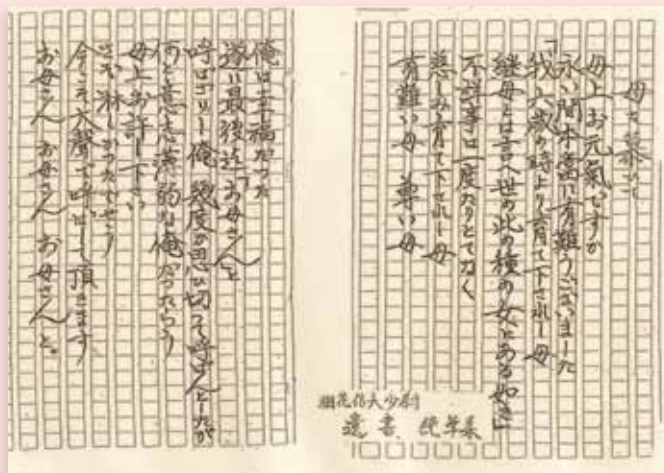 母を慕いて
母上お元氣ですか
永い間本當に有難うございました
我六歳の時より育て下されし母
継母とは言へ世の此の種の女にある如き
不祥事は一度たりとてなく
慈しみ育て下されし母
有難い母 尊い母
俺は幸福だった
遂に最後迄「お母さん」と
呼ばざりし俺 幾度か思ひ切って呼ばんとしたが
何と意志薄弱な俺だったらう
母上お許し下さい
さぞ淋しかったでせう
今こそ大聲で呼ばして頂きます
お母さん お母さん お母さんと。
相花信夫少尉
遺書